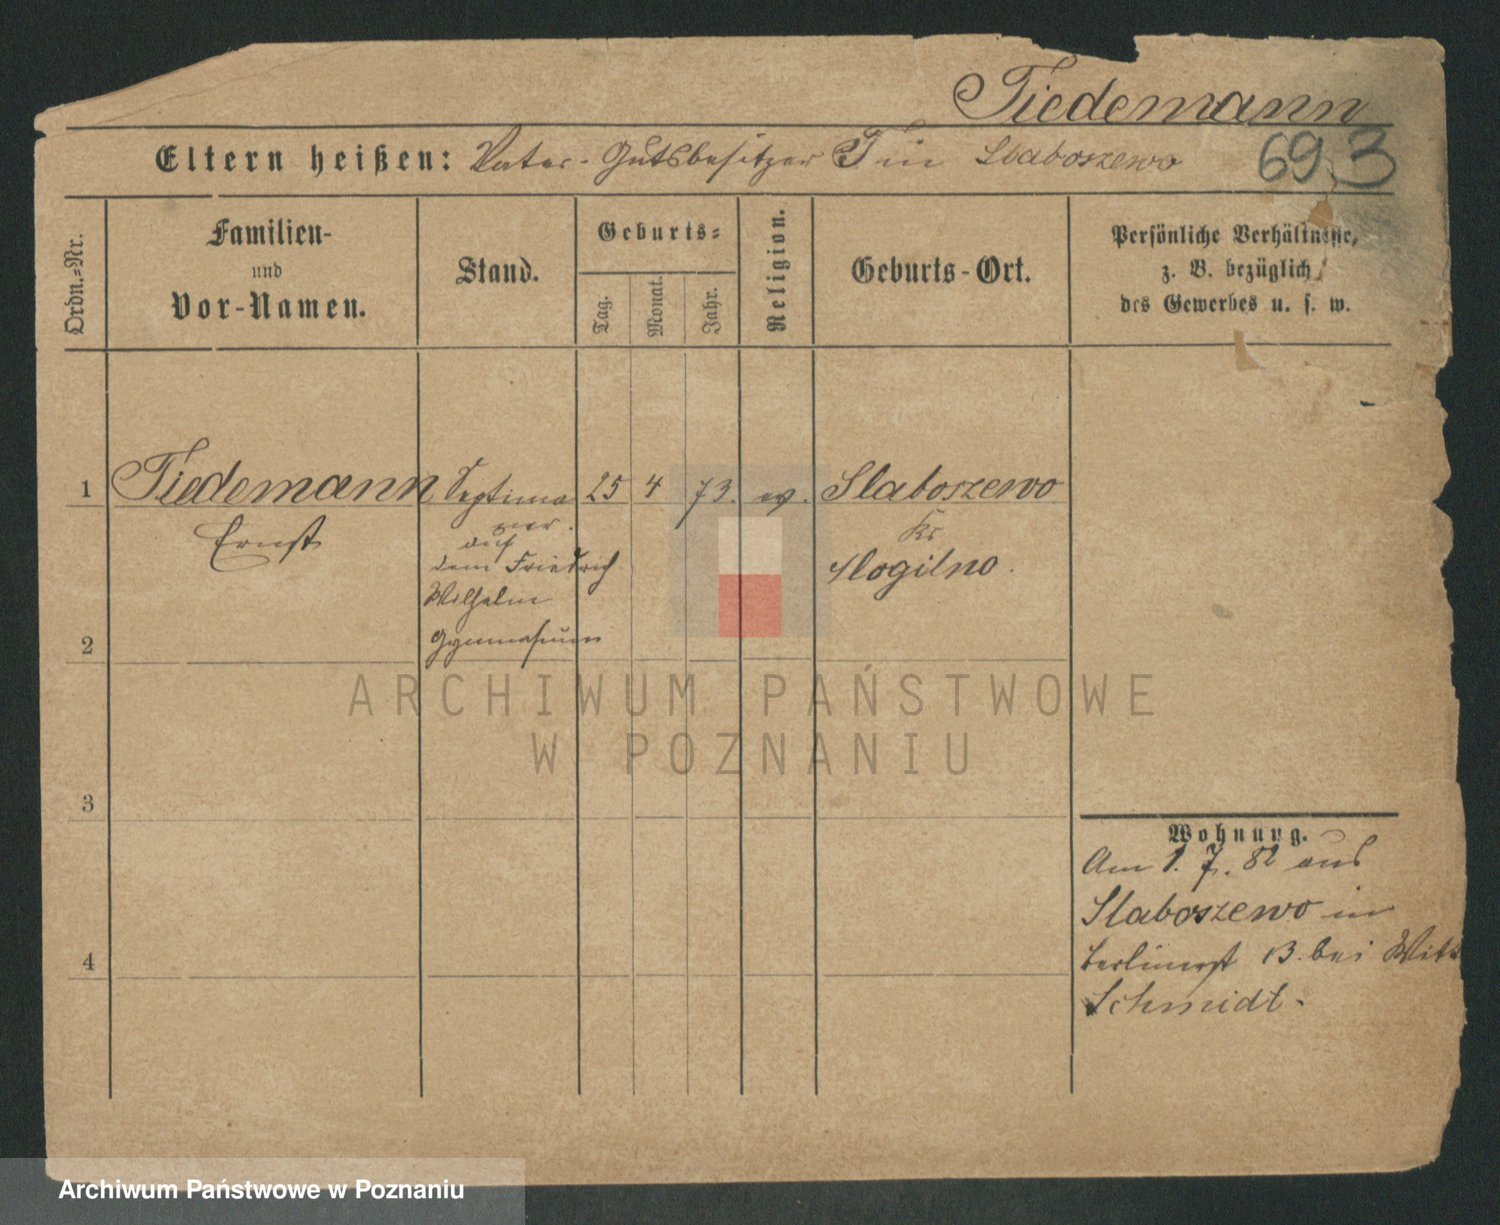 Tiedemann
Eltern heißen: Vater. Gutsbesitzer T in Slaboszewo
693
Ordn.-Nr.
Familien-
und
Vor-Namen.
Stand.
Geburts-
Tag.
Monat.
Jahr.
Religion.
Geburts-Ort.
Persönliche Verhältnisse,
z. B. bezüglich
des Gewerbes u. s. w.
1 Tiedemann Septima 25 4 73. ev. Slaboszewo
Ernst
ner.
auf
dem Friedrich
Wilhelm
Gymnasium
Kr
Mogilno.
2
3
4
Wohnung.
Am 1. 7. 82 aus
Slaboszewo in
Berlinerst 13. bei
Schmidt.
ARCHIWUM PAŃSTWOWE
W POZNANIU
Archiwum Państwowe w Poznaniu